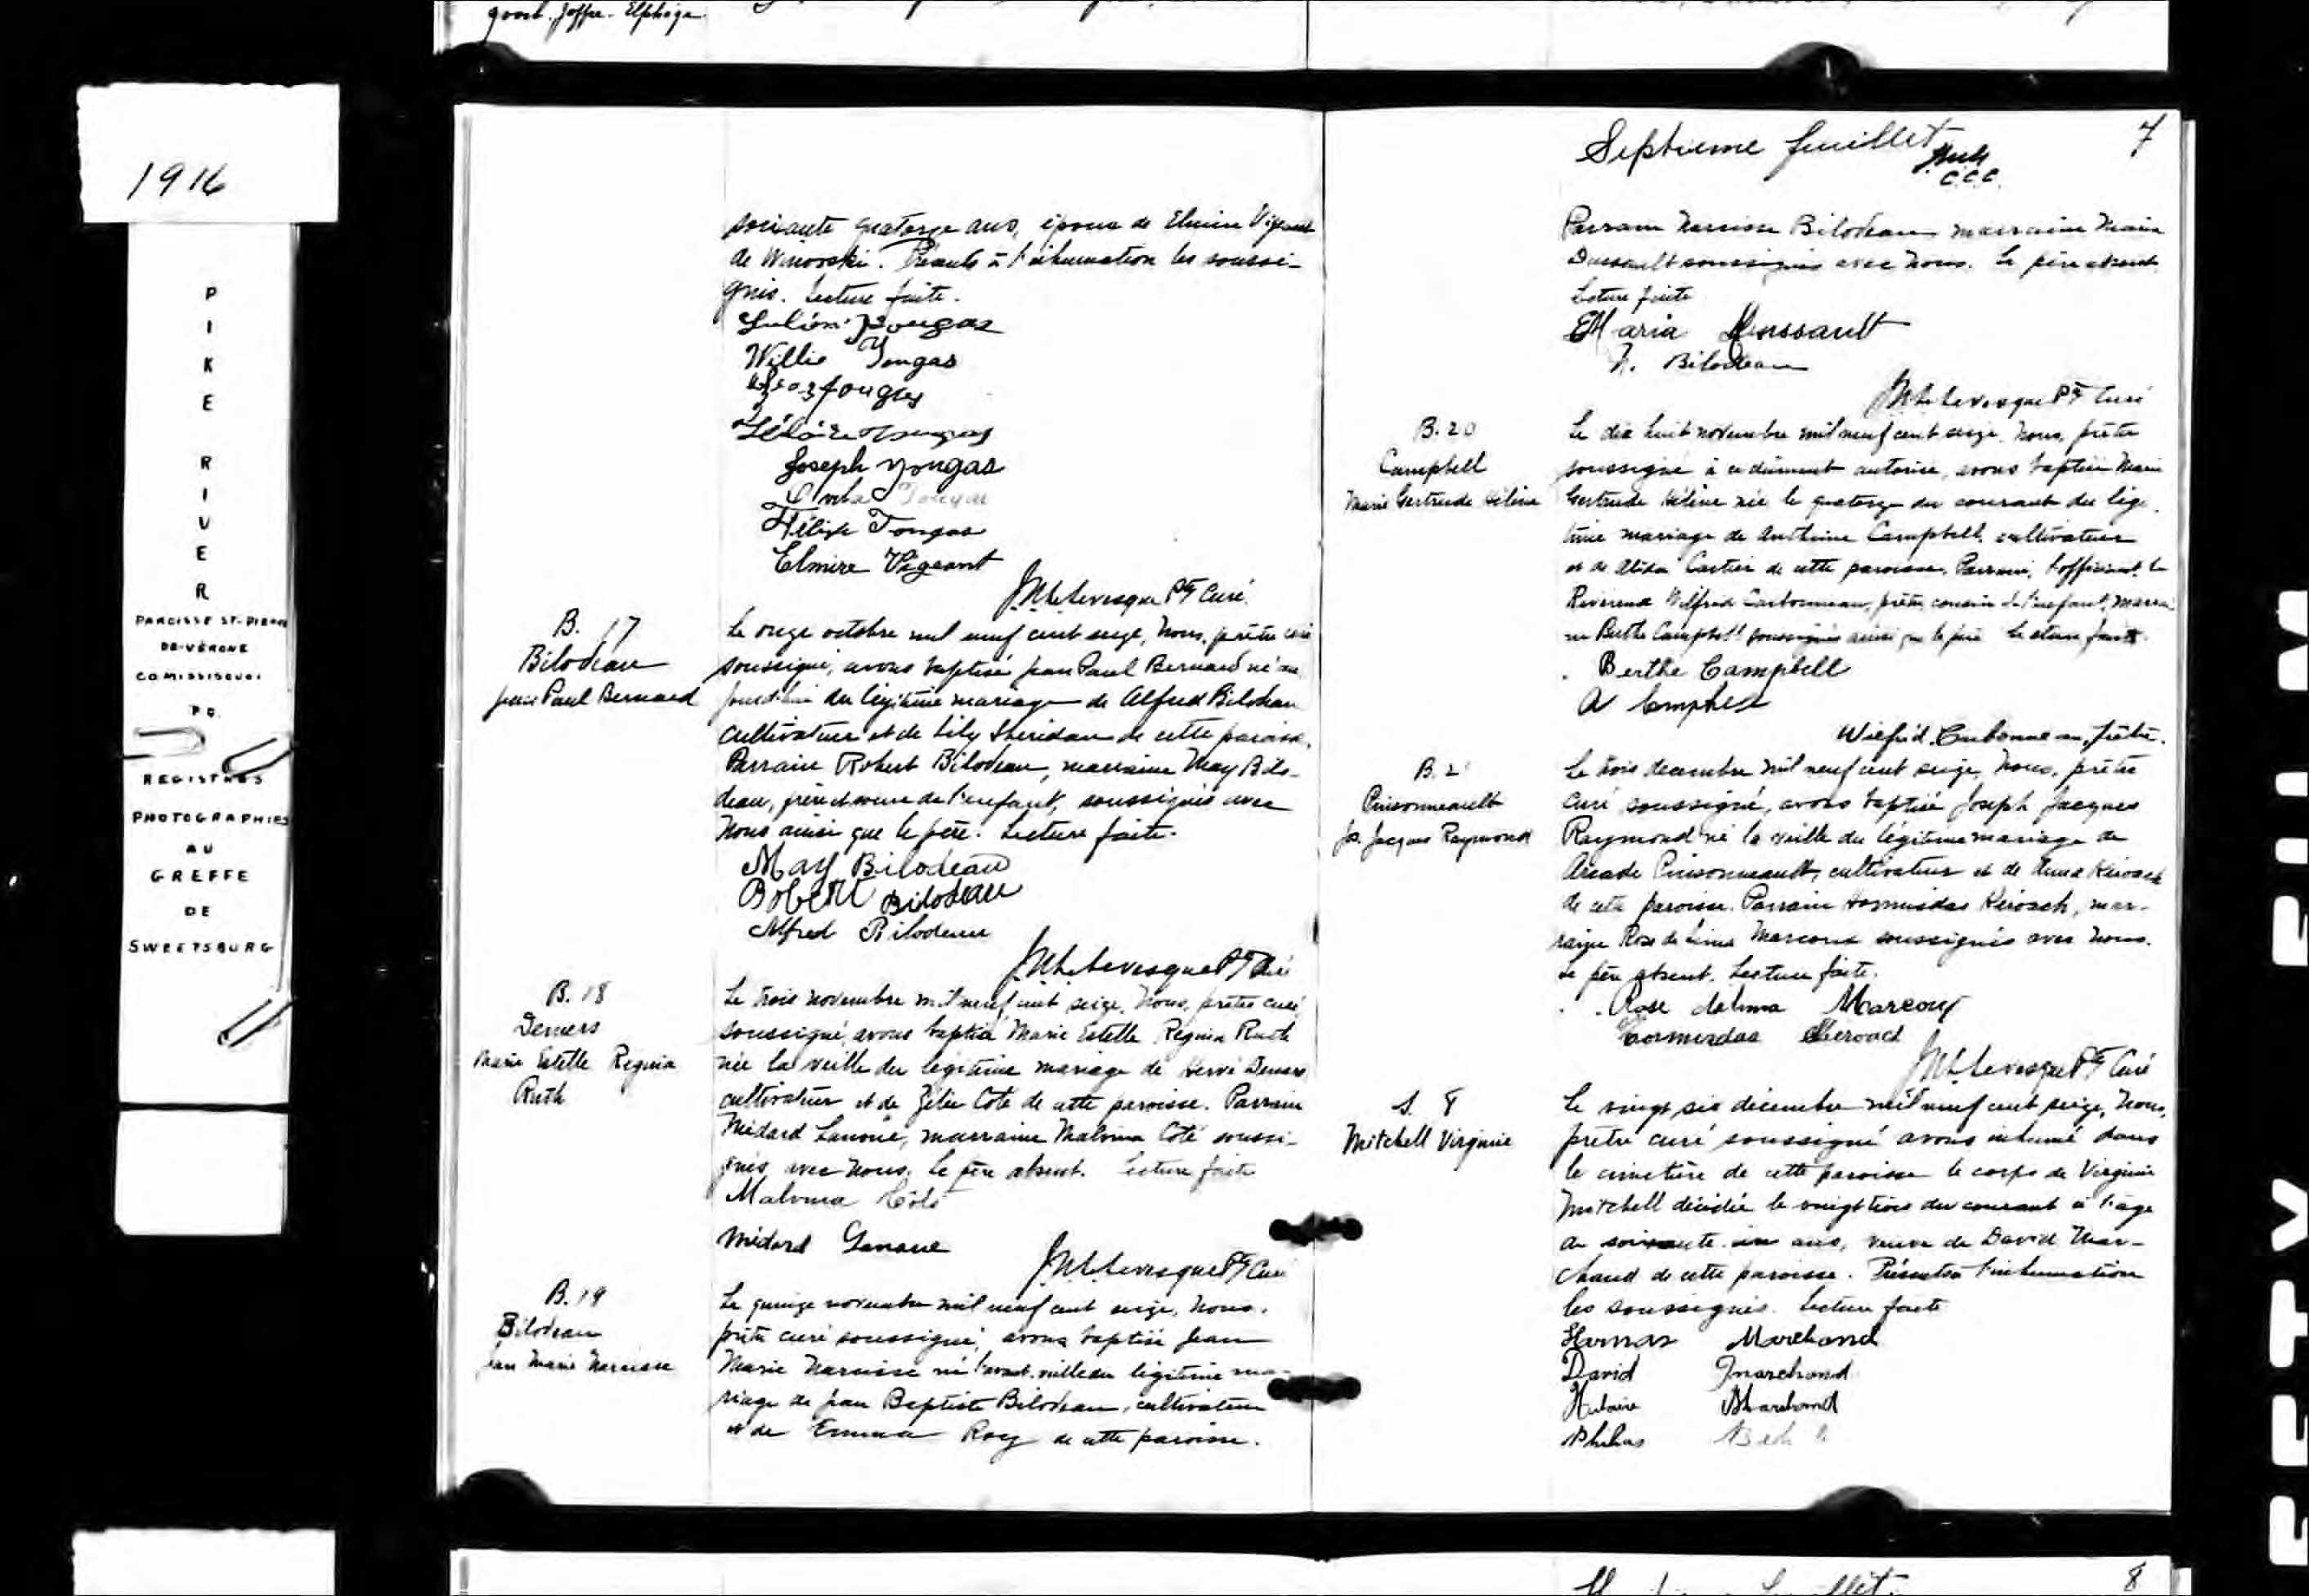 goort. Joffre. Elphège
1916
PIKE
RIVER
PAROISSE ST-PIERRE
DE-VÉRONE
CO MISSISQUOI
P Q.
REGISTRES
PHOTOGRAPHIES
AU
GREFFE
DE
SWEETSBURG
soixante quatorze ans, époux de Elmire Vigeant
de Winooski. Présents à l'inhumation les soussi-
gnés. Lecture faite.
Willie Yongas
Joseph Yongas
Félix Tongas
Elmire Vigeant
J.M.L. Levesque Ptr Curé.
B. 17
Bilodeau
Jean Paul Bernard
Le onze octobre mil neuf cent seize, Nous, prêtre curé
soussigné, avons baptisé Jean Paul Bernard né au-
jourd'hui du légitime mariage de Alfred Bilodeau
cultivateur et de Lily Sheridan de cette paroisse.
Parrain Robert Bilodeau, marraine May Bilo-
deau, frère et soeur de l'enfant, soussignés avec
Nous ainsi que le père. Lecture faite.
May Bilodeau
Robert Bilodeau
Alfred Bilodeau
J.M.L. Levesque Ptr Curé
B. 18
Demers
Marie Estelle Regina
Ruth
Le trois novembre mil neuf cent seize, Nous, prêtre curé
soussigné, avons baptisé Marie Estelle Regina Ruth
née la veille du légitime mariage de Hervé Demers
cultivateur et de Zélie Côté de cette paroisse. Parrain
Médard Lanoue, marraine Malvina Coté soussi-
gnés avec Nous. Le père absent. Lecture faite
Malvina Côté
Médard Lanoue
J.M.L. Levesque Ptr Curé
B. 19
Bilodeau
Jean Marie Narcisse
Le quinze novembre mil neuf cent seize, Nous,
prêtre curé soussigné, avons baptisé Jean
Marie Narcisse né l'avant-veille du légitime ma-
riage de Jean Baptiste Bilodeau, cultivateur
et de Emma Roy de cette paroisse.
Septième feuillet
C.C.C.
7
Parrain Narcisse Bilodeau marraine Maria
Dussault soussignés avec Nous. Le père absent.
Lecture faite
Maria Dussault
N. Bilodeau
J.M.L. Levesque Ptr Curé
B. 20
Campbell
Marie Gertrude Hélène
Le dix huit novembre mil neuf cent seize, Nous, prêtre
soussigné à ce dûment autorisé, avons baptisé Marie
Gertrude Hélène née le quatorze du courant du légi-
time mariage de Anthime Campbell, cultivateur
et de Alida Cartier de cette paroisse. Parrain, l'officiant le
Révérend Wilfrid Carbonneau, prêtre, cousin de l'enfant, marrai-
ne Berthe Campbell soussignés ainsi que le père. Lecture faite.
Berthe Campbell
A Campbell
Wilfrid Carbonneau, prêtre.
B. 2
Pinsonneault
Jos. Jacques Raymond
Le trois decembre mil neuf cent seize, Nous, prêtre
curé soussigné, avons baptisé Joseph Jacques
Raymond né la veille du légitime mariage de
Arcade Pinsonneault, cultivateur et de Anna Kéroack
de cette paroisse. Parrain Hormisdas Kéroack, mar-
raine Rose de Lima Marcoux soussignés avec Nous.
Le père absent. Lecture faite.
Rose delima Marcoux
Hormisdas Keroack
J.M.L. Levesque Ptr Curé
S. 8
Mitchell Virginie
Le vingt six décembre mil neuf cent seize, Nous,
prêtre curé soussigné avons inhumé dans
le cimetière de cette paroisse le corps de Virginie
Mitchell décédée le vingt trois du courant à l'age
de soixante un ans, veuve de David Mar-
chand de cette paroisse. Présents à l'inhumation
les soussignés. Lecture faite
Thomas Marchand
David Marchand
Hilaire Marchand
8